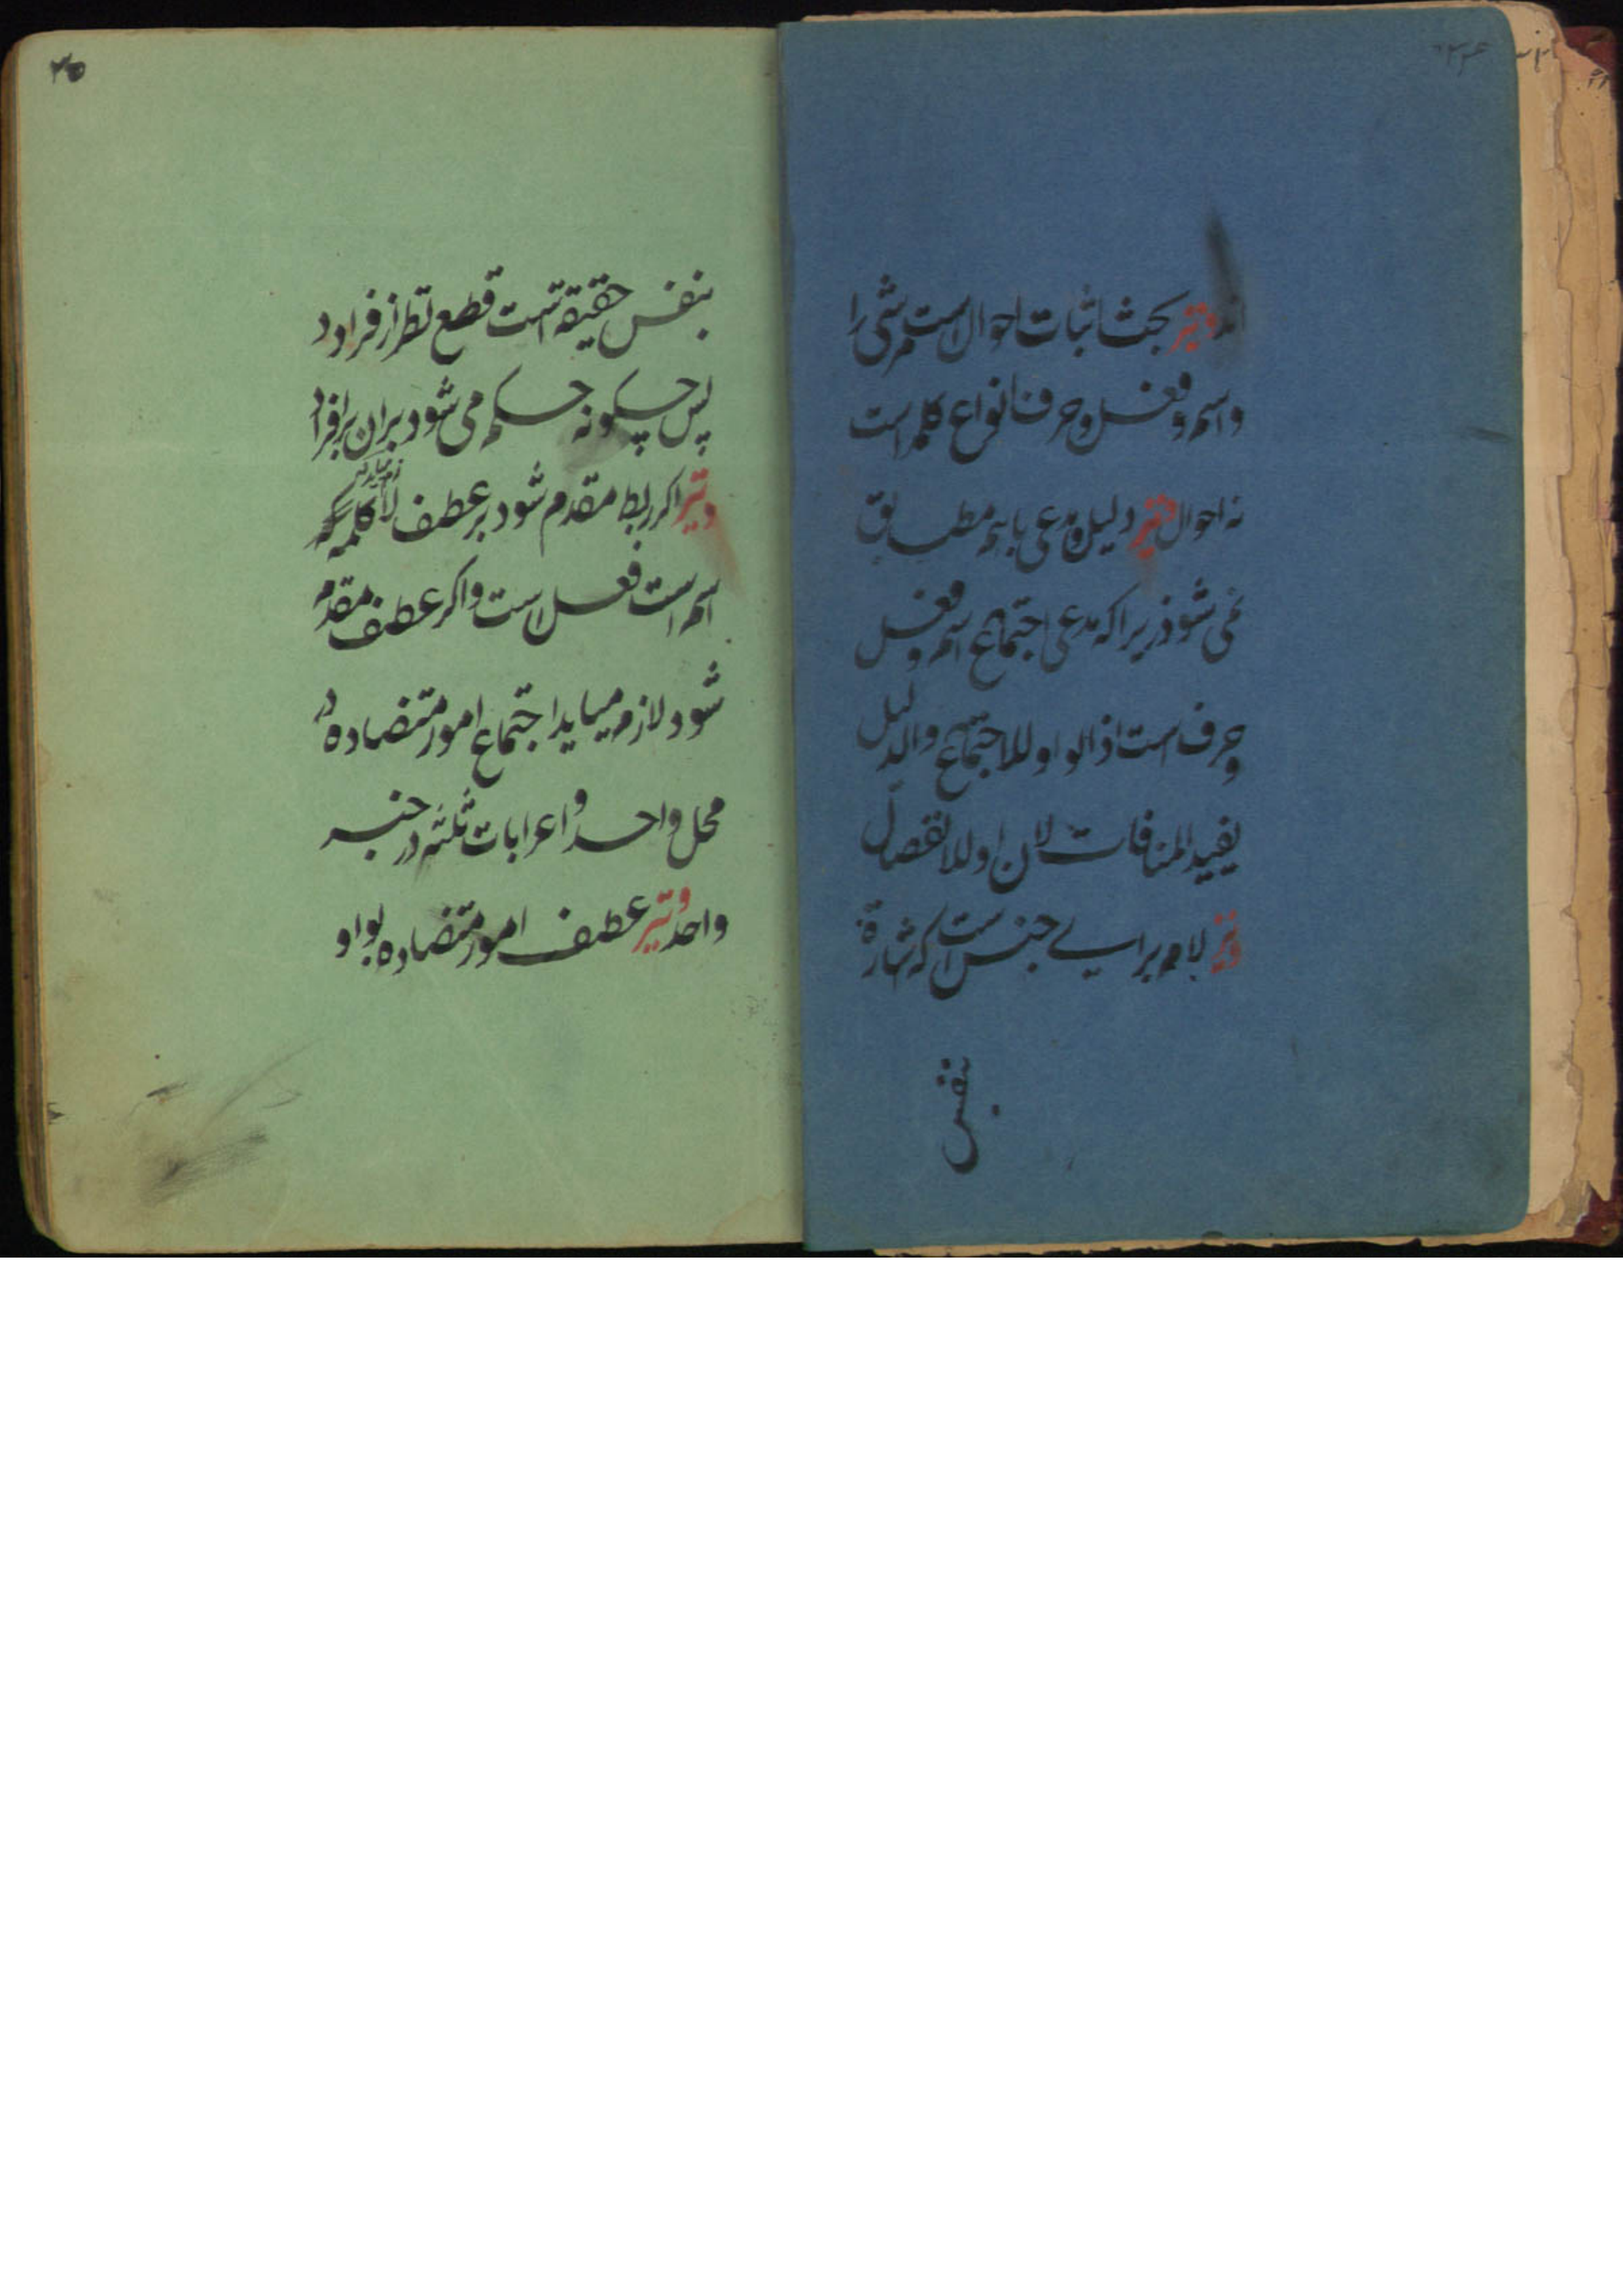 اند وتیر بحث اثبات احوال است مر شی را
واسم وفعل وحرف انواع کلمه است
نه احوال وتیر دلیل ومدعی باهم مطابق
نمی شود زیرا که مدعی اجتماع اسم وفعل
وحرف است اذ الواو للاجتماع والدلیل
یفید المنافات لان او للانفصال
وتیر لام برای جنس است که اشارة
بنفس
۳۵
بنفس حقیقة است قطع نظر از فراد د
پس چکونه حکم می شود بران بر افراد
وتیر اکر ربط مقدم شود بر عطف لازم میاید کلمه که
اسم است فعل است واکر عطف مقدم
شود لازم میاید اجتماع امور متضاده در
محل واحد واعرابات ثلثه در خبر
واحد وتیر عطف امور متضاده بواو